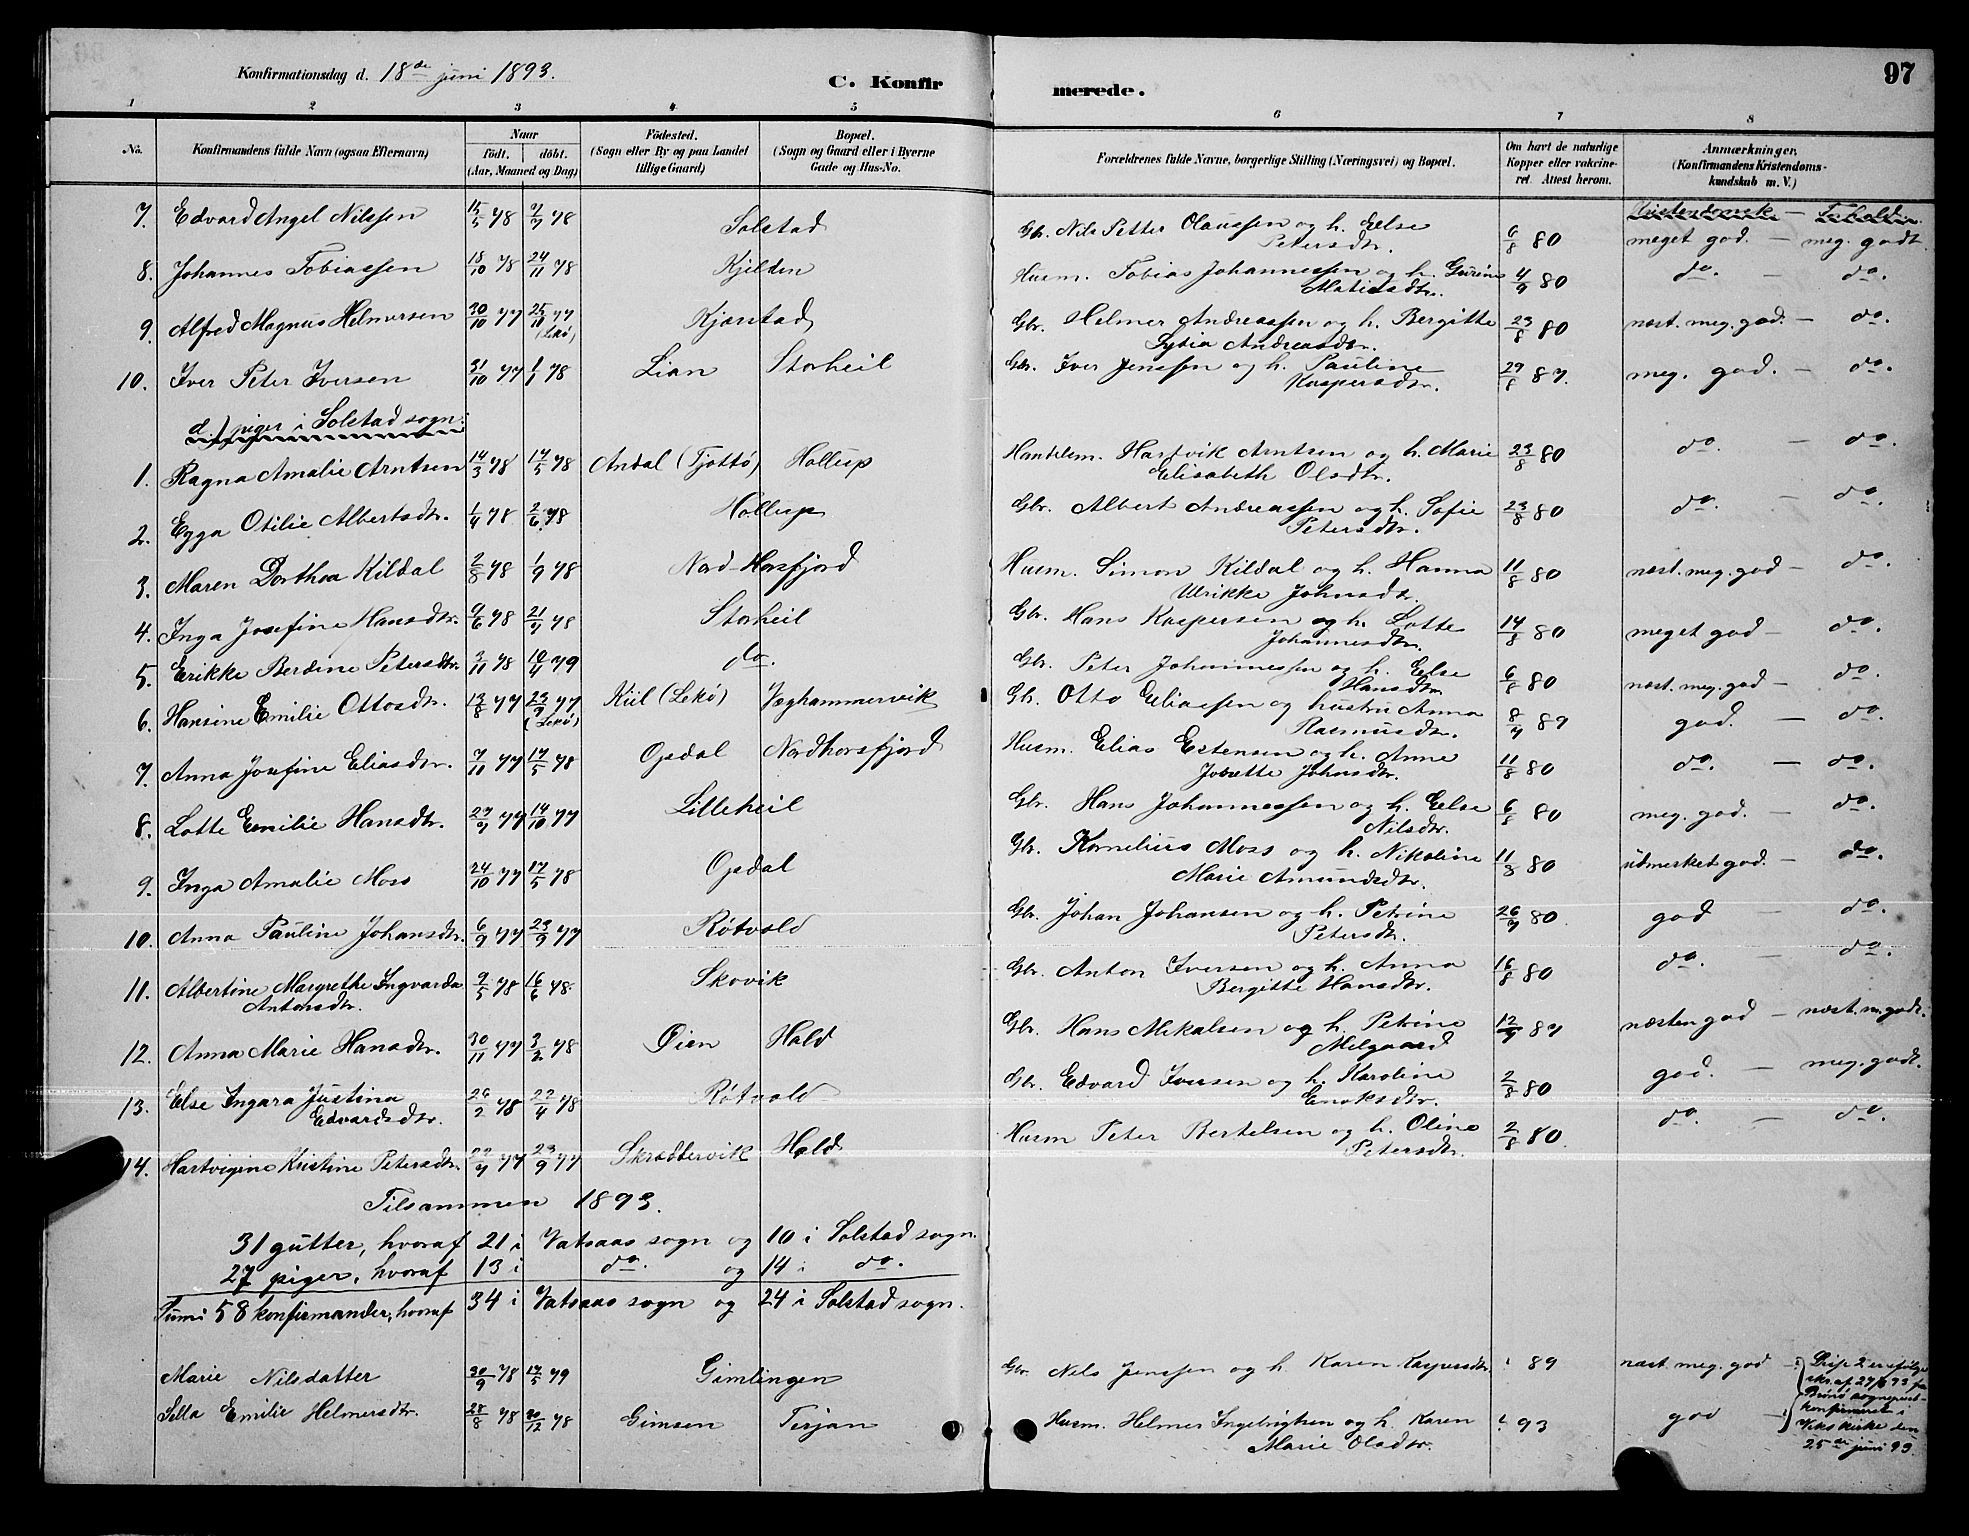 97
Konfirmationsdag d. 18de juni 1893.
C. Konfirmerede.
1 2 3 4 5 6 7 8
No. Konfirmandens fulde Navn (ogsaa Efternavn) Naar født. døbt. (Aar, Maaned og Dag) Födested. (Sogn eller By og paa Landet tillige Gaard) Bopæl. (Sogn og Gaard eller i Byerne Gade og Hus-No. Forældrenes fulde Navne, borgerlige Stilling (Næringsvei) og Bopæl. Om havt de naturlige Kopper eller vakcineret. Attest herom. Anmærkninger. (Konfirmandens Kristendomskundskab m. V.)
Kristendomsk. - Forhold
7. Edvard Angel Nilssen 15/5 78 7/7 78 Solstad Gbr. Nils Petter Olaussen og h. Else Petersdtr. 6/8 80 meget god. - meg. godt.
8. Johannes Tobiassen 18/10 78 24/11 78 Kjelden Husm. Tobias Johannessen og h. Gurine Matiasdtr. 4/9 80 do. - do.
9. Alfred Magnus Helmersen 30/10 77 25/11 77 (Lekø) Kjærstad Gbr. Helmer Andreassen og h. Bergitte Sytia Andreasdtr. 23/8 80 næst. meg. god. - do.
10. Iver Peter Iversen 31/10 77 1/1 78 Lian Storheil Gbr. Iver Jenssen og h. Pauline Kaspersdtr. 29/8 87. meg. god. - do.
d.) piger i Solstad sogn:
1. Ragna Amalie Arntsen 14/3 78 17/5 78 Andal (Tjøttø) Hollup Handelsm. Hartvik Arntsen og h. Marie Elisabeth Olsdtr. 23/8 80 do. - do.
2. Egga Otilie Albertsdtr. 1/4 78 2/6 78 Hollup Gbr. Albert Andreassen og h. Sofie Petersdtr. 23/8 80 do. - do.
3. Maren Dorthea Kildal 2/8 78 1/9 78 Nord-Horsfjord Husm. Simon Kildal og h. Hanna Ulrikke Johnsdtr. 11/8 80 næst. meg. god - do.
4. Inga Josefine Hansdtr. 9/6 78 21/7 78 Storheil Gbr. Hans Kaspersen og h. Lotte Johannesdtr. 14/8 80 meget god - do.
5. Erikke Berdine Petersdtr. 3/11 78 10/4 79 do. Gbr. Peter Johannessen og h. Else Hansdtr. 6/8 80 næst. meg. god - do.
6. Hansine Emilie Ottosdtr. 13/8 77 23/9 77 (Lekø) Kiil (Lekø) Væghammervik Gbr. Otto Eliassen og hustru Anna Rasmusdtr. 8/7 87 god. - do.
7. Anna Josefine Eliasdtr. 7/11 77 17/5 78 Opdal Nordhorsfjord Husm. Elias Estensen og h. Anne Jobette Johnsdtr. 11/8 80 do. - do.
8. Lotte Emilie Hansdtr. 27/7 77 14/10 77 Lilleheil Gbr. Hans Johannessen og h. Else Nilsdtr. 6/8 80 meg. god. - do.
9. Inga Amalie Moss 24/10 77 17/5 78 Opdal Gbr. Kornelius Moss og h. Nikoline Marie Amundsdtr. 11/8 80 udmerket god. - do.
10. Anna Pauline Johansdtr. 6/9 77 23/9 77 Røtvold Gbr. Johan Johansen og h. Petrine Petersdtr. 26/7 80. god - do.
11. Albertine Margrethe Ingvarda Antonsdtr. 2/5 78 16/6 78 Skovik Gbr. Anton Iversen og h. Anna Bergitte Hansdtr. 16/8 80 do. - do.
12. Anna Marie Hansdtr. 30/11 77 3/2 78 Øien Hald Gbr. Hans Mikalsen og h. Petrine Melgaard 12/7 87 næsten god - næst. m. godt.
13. Else Ingara Justina Edvardsdtr. 26/2 78 22/4 78 Røtvold Gbr. Edvard Iversen og h. Karoline Enoksdtr. 2/8 80 god. - meg. godt.
14. Hartvigine Kristine Petersdtr. 22/7 77 23/9 77 Skræddervik Hald Husm Peter Bertelsen og h. Oline Petersdtr. 2/8 80. do. - do.
Tilsammen 1893.
31 gutter, hvoraf 21 i Vatsaas sogn og 10 i Solstad sogn.
27 piger, hvoraf 13 i do. og 14 i do.
Sum: 58 konfirmander, hvoraf 34 i Vatsaas sogn og 24 i Solstad sogn.
Marie Nilsdatter 30/9 78 17/5 79 Gimlingen Gbr Nils Jenssen og h. Karen Kaspersdtr. 89 næst. meg. god
Sella Emilie Helmersdtr. 28/8 78 30/12 78 Gimsen Terjan Husm. Helmer Ingebrigtsen og h. Karen Marie Olsdtr. 93 god
Disse 2 er ifølge
skr. af 27/6 93 fra
Brønø sogneprest
konfirmeret i
Viks kirke den
25de juni 93.